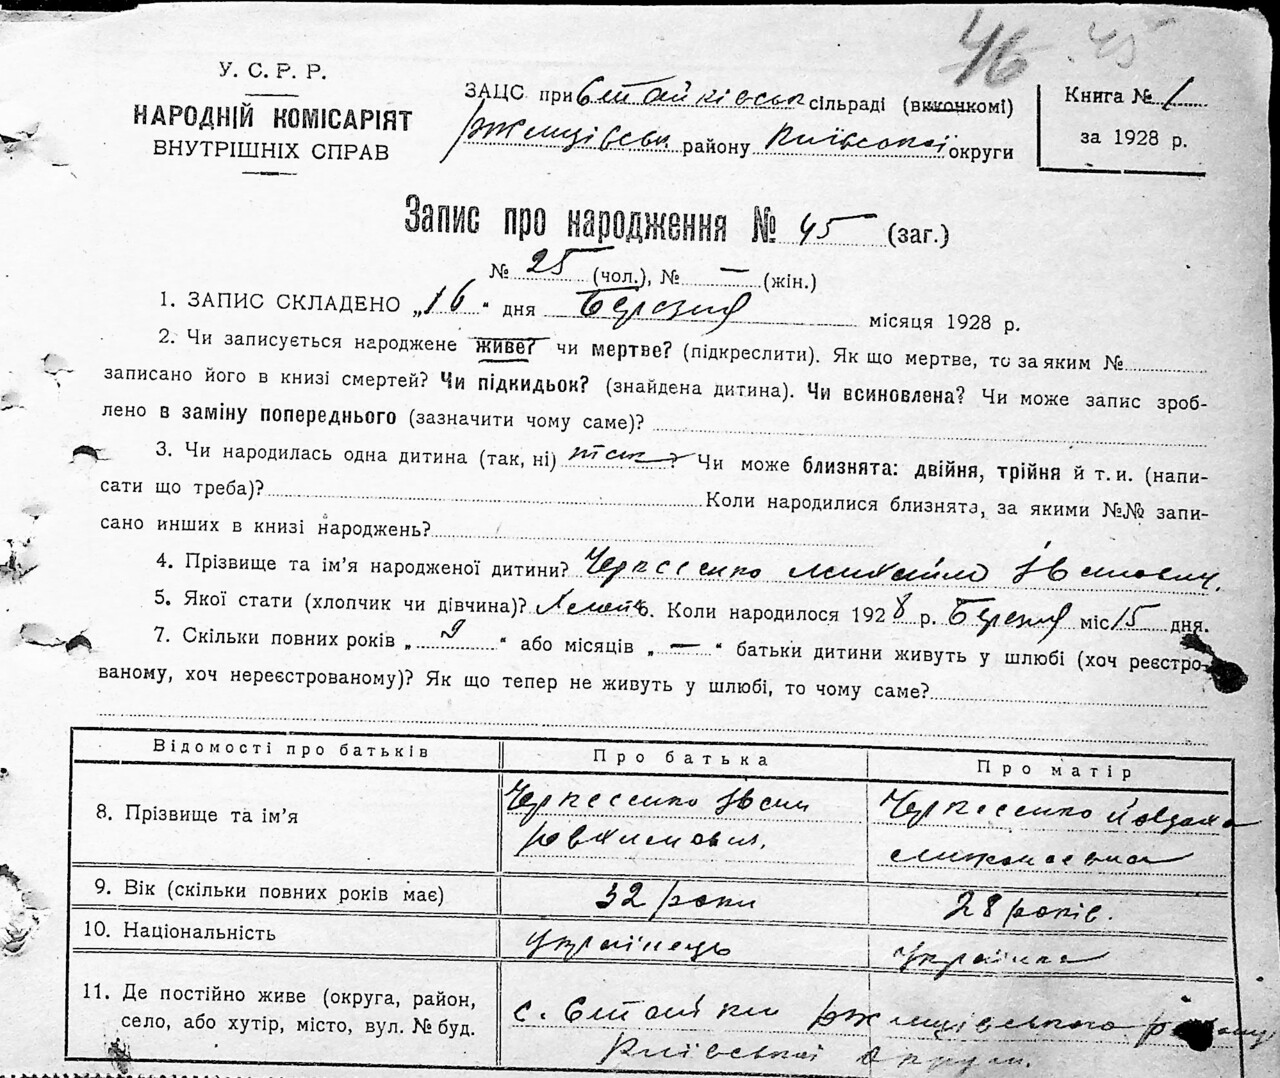 46 45
У. С. Р. Р.
НАРОДНІЙ КОМІСАРІЯТ
ВНУТРІШНІХ СПРАВ
ЗАЦС при Стайківськ сільраді (виконкомі)
Ржищівськ району Київської округи
Книга № 1
за 1928 р.
Запис про народження № 45 (заг.)
№ 25 (чол.), № — (жін.)
1. ЗАПИС СКЛАДЕНО „16“ дня Березня місяця 1928 р.
2. Чи записується народжене живе? чи мертве? (підкреслити). Як що мертве, то за яким №
записано його в книзі смертей? Чи підкидьок? (знайдена дитина). Чи всиновлена? Чи може запис зроб-
лено в заміну попереднього (зазначити чому саме)?
3. Чи народилась одна дитина (так, ні) так? Чи може близнята: двійня, трійня й т. и. (напи-
сати що треба)? Коли народилися близнята, за якими №№ запи-
сано инших в книзі народжень?
4. Прізвище та ім'я народженої дитини? Черкесенко Михайло Іванович.
5. Якої стати (хлопчик чи дівчина)? Коли народилося 1928 р. Березня міс 15 дня.
7. Скільки повних років „9“ або місяців „—“ батьки дитини живуть у шлюбі (хоч реєстро-
ваному, хоч нереєстрованому)? Як що тепер не живуть у шлюбі, то чому саме?
Відомості про батьків Про батька Про матір
8. Прізвище та ім'я Черкесенко Іван Черкесенко
9. Вік (скільки повних років має) 32 роки 28 років.
10. Національність Українець Українка
11. Де постійно живе (округа, район, с. Стайки Ржищівського району
село, або хутір, місто, вул. № буд. Київської округи.